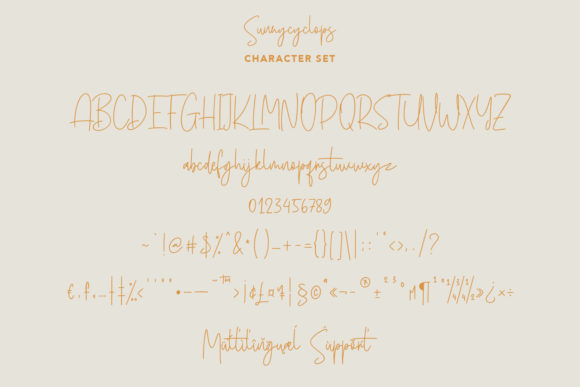 Sunnycyclops
CHARACTER SET
ABCDEFGHIJKLMNOPQRSTUVWXYZ
abcdefghijklmnopqrstuvwxyz
0123456789
~`!@#$%^&*()_+-={}[]\|:;'"<>,./?
€‚ƒ„…†‡‰‹''""•–—˜™›¡¢£¤¥¦§©ª«¬-®¯±²³ºµ¶¹º¼¾½»¿×÷
Multilingual Support